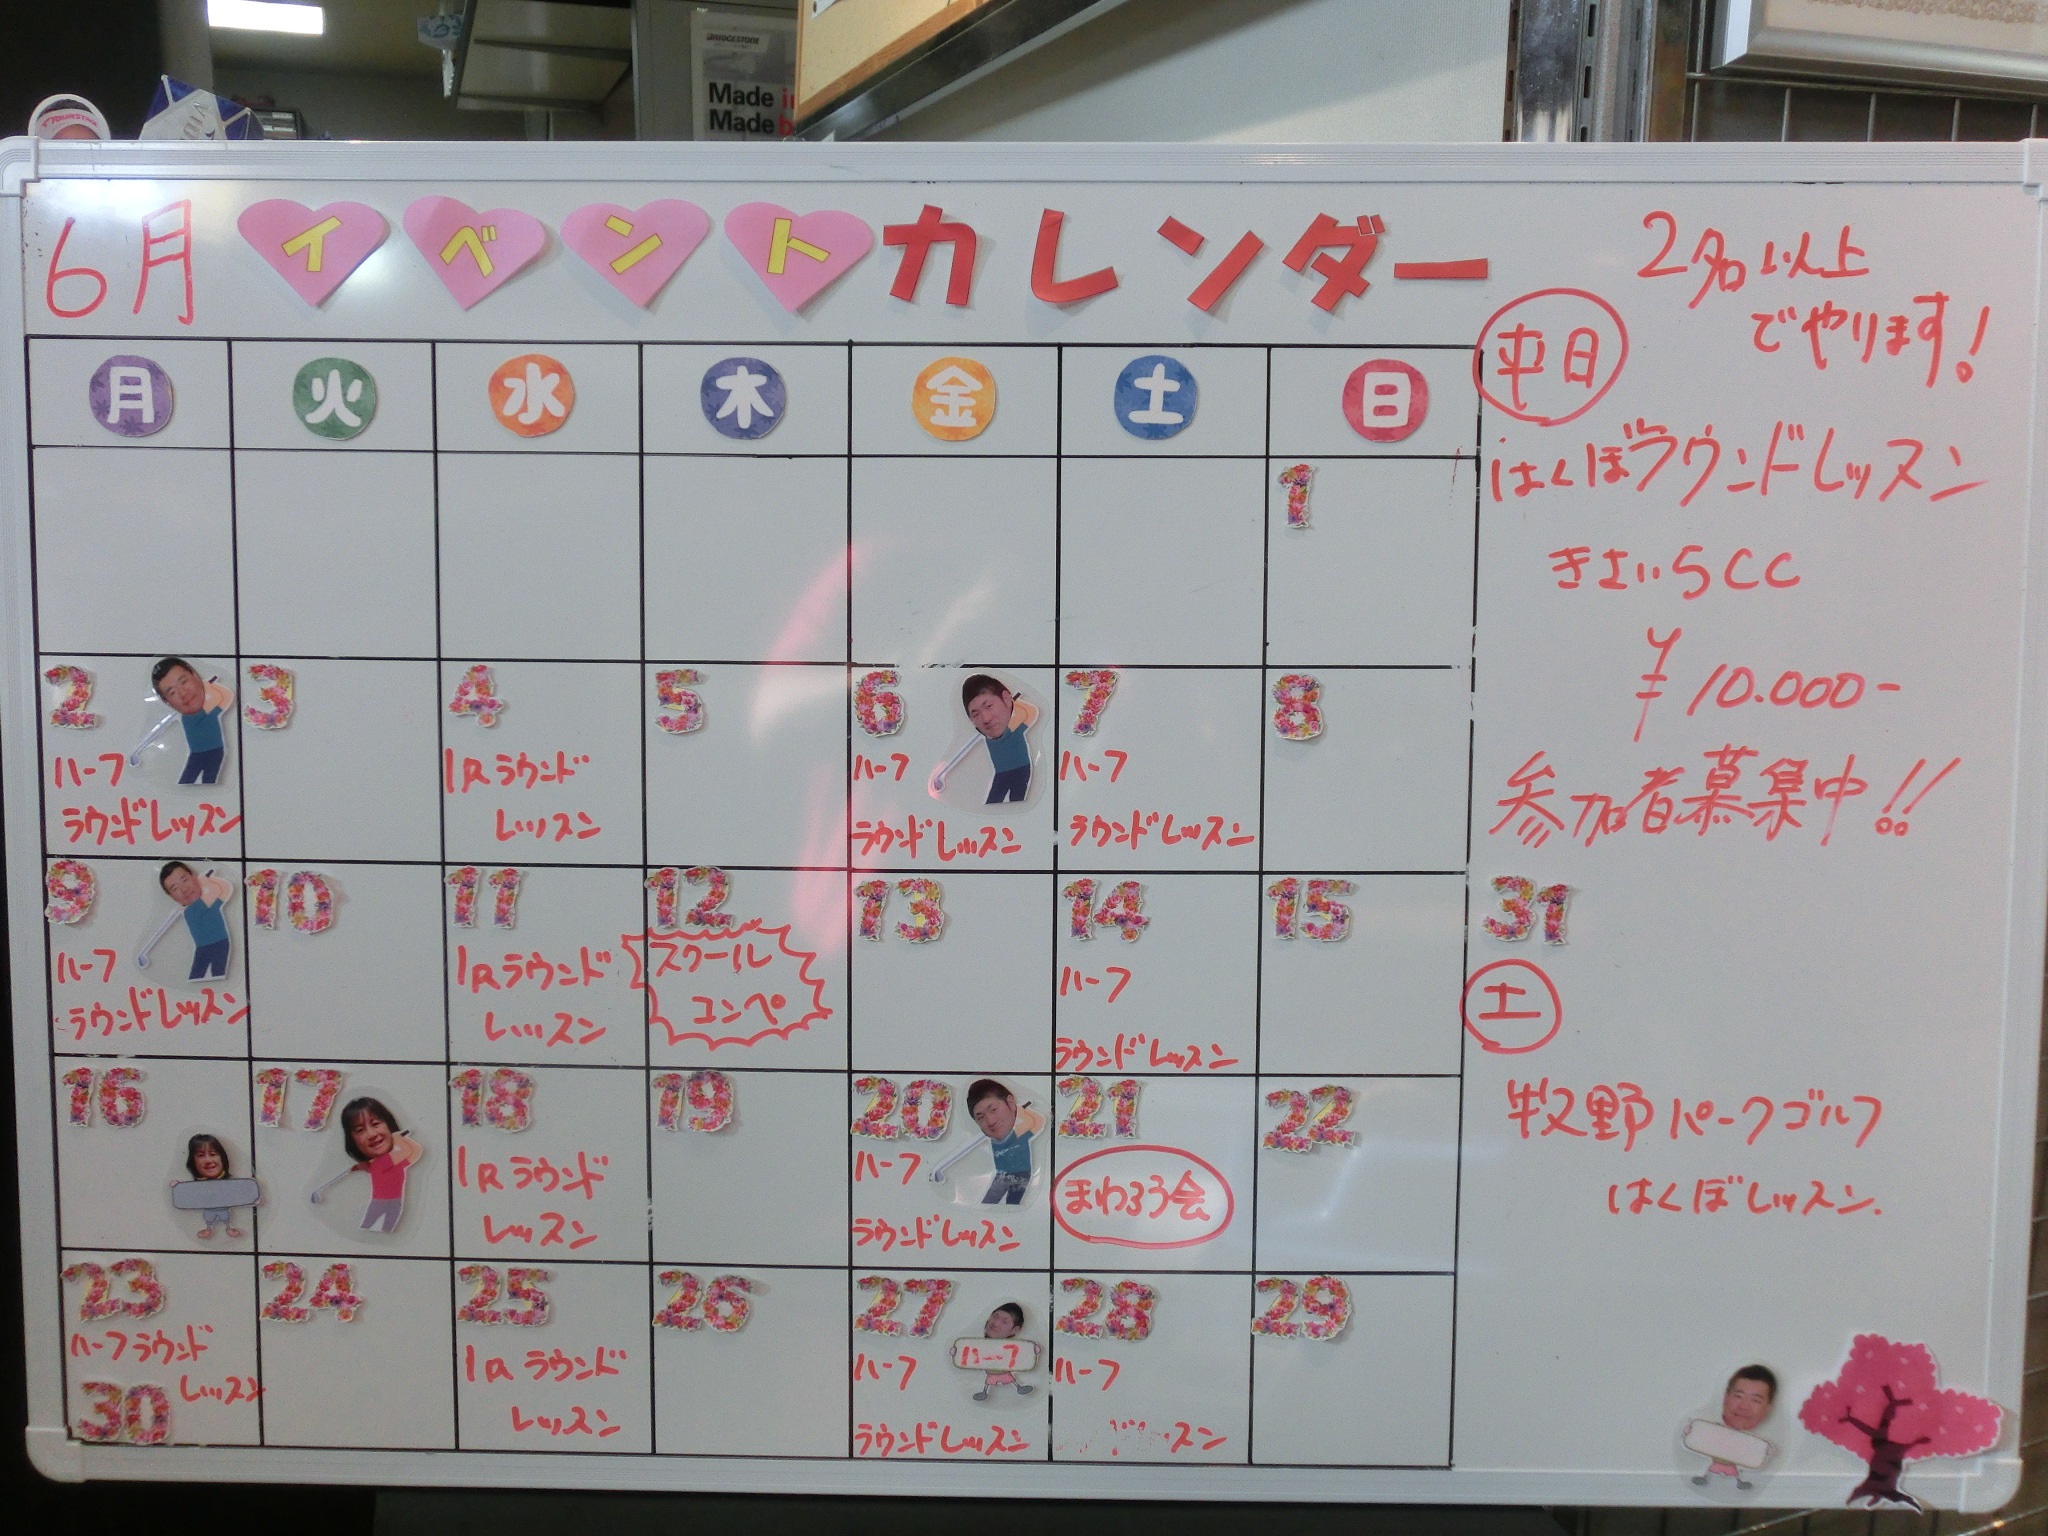 BRIDGESTONE
Made
Made b
TOURSTAGE
6月 イベントカレンダー
2名以上
でやります!
平日
はくぼラウンドレッスン
きさいちCC
¥10.000-
参加者募集中!!
31
土
牧野パークゴルフ
はくぼレッスン.
月 火 水 木 金 土 日
1
2 3 4 5 6 7 8
ハーフ
ラウンドレッスン
1Rラウンド
レッスン
ハーフ
ラウンドレッスン
ハーフ
ラウンドレッスン
9 10 11 12 13 14 15
ハーフ
ラウンドレッスン
1Rラウンド
レッスン
スクール
コンペ
ハーフ
ラウンドレッスン
16 17 18 19 20 21 22
1Rラウンド
レッスン
ハーフ
ラウンドレッスン
まわろう会
23 24 25 26 27 28 29
ハーフラウンド
レッスン
30
1Rラウンド
レッスン
ハーフ
ハーフ
ラウンドレッスン
ハーフ
スン